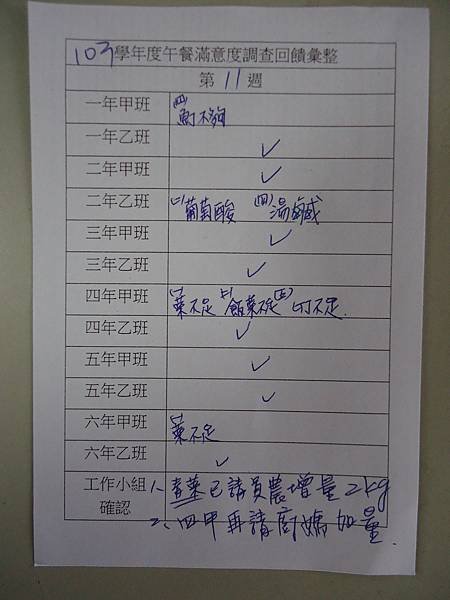 103學年度午餐滿意度調查回饋彙整
第11週
一年甲班 (四)魚不夠
一年乙班 ✓
二年甲班 ✓
二年乙班 (二)葡萄酸 (四)湯鹹
三年甲班 ✓
三年乙班 ✓
四年甲班 菜不足 飯菜不足 不足.
四年乙班 ✓
五年甲班 ✓
五年乙班 ✓
六年甲班 菜不足
六年乙班 ✓
工作小組確認 1、青菜已請員農增量2kg
2、四甲再請廚媽加量.